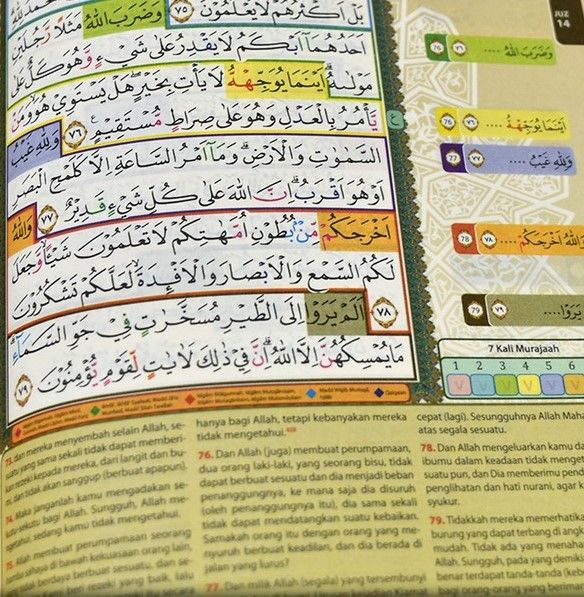 بَلْ اَكْثَرُهُمْ لَا يَعْلَمُوْنَ ٧٥ وَضَرَبَ اللّٰهُ مَثَلًا رَّجُلَيْنِ
اَحَدُهُمَآ اَبْكَمُ لَا يَقْدِرُ عَلٰى شَيْءٍ وَّهُوَ كَلٌّ عَلٰى
مَوْلٰىهُ اَيْنَمَا يُوَجِّهْهُّ لَا يَأْتِ بِخَيْرٍ هَلْ يَسْتَوِيْ هُوَ وَمَنْ
يَّأْمُرُ بِالْعَدْلِ وَهُوَ عَلٰى صِرَاطٍ مُّسْتَقِيْمٍ ٧٦ وَلِلّٰهِ غَيْبُ
السَّمٰوٰتِ وَالْاَرْضِ وَمَآ اَمْرُ السَّاعَةِ اِلَّا كَلَمْحِ الْبَصَرِ
اَوْ هُوَ اَقْرَبُ اِنَّ اللّٰهَ عَلٰى كُلِّ شَيْءٍ قَدِيْرٌ ٧٧ وَاللّٰهُ
اَخْرَجَكُمْ مِّنْۢ بُطُوْنِ اُمَّهٰتِكُمْ لَا تَعْلَمُوْنَ شَيْـًٔا وَّجَعَلَ
لَكُمُ السَّمْعَ وَالْاَبْصَارَ وَالْاَفْـِٕدَةَ لَعَلَّكُمْ تَشْكُرُوْنَ
٧٨ اَلَمْ يَرَوْا اِلَى الطَّيْرِ مُسَخَّرٰتٍ فِيْ جَوِّ السَّمَاۤءِ
مَا يُمْسِكُهُنَّ اِلَّا اللّٰهُ اِنَّ فِيْ ذٰلِكَ لَاٰيٰتٍ لِّقَوْمٍ يُّؤْمِنُوْنَ ٧٩
JUZ
14
76 ٧٦ وَضَرَبَ اللّٰهُ ....
76 ٧٦ اَيْنَمَا يُوَجِّهْهُّ ....
77 ٧٧ وَلِلّٰهِ غَيْبُ ....
78 ٧٨ وَاللّٰهُ اَخْرَجَكُمْ ....
79 ٧٩ يَرَوْا ....
7 Kali Murajaah
1 2 3 4 5 6
73. dan mereka menyembah selain Allah, se-
suatu yang sama sekali tidak dapat memberi-
kan rezeki kepada mereka, dari langit dan bu-
mi, dan tidak akan sanggup (berbuat apapun).
74. Maka janganlah kamu mengadakan se-
kutu-sekutu bagi Allah. Sungguh, Allah me-
ngetahui, sedang kamu tidak mengetahui.
75. Allah membuat perumpamaan seorang
hamba sahaya di bawah kekuasaan orang lain,
tidak berdaya berbuat sesuatu, dan se-
beri rezeki yang baik, lalu
hanya bagi Allah, tetapi kebanyakan mereka
tidak mengetahui.
76. Dan Allah (juga) membuat perumpamaan,
dua orang laki-laki, yang seorang bisu, tidak
dapat berbuat sesuatu dan dia menjadi beban
penanggungnya, ke mana saja dia disuruh
(oleh penanggungnya itu), dia sama sekali
tidak dapat mendatangkan suatu kebaikan.
Samakah orang itu dengan orang yang me-
nyuruh berbuat keadilan, dan dia berada di
jalan yang lurus?
77. Dan milik Allah (segala) yang tersembunyi
cepat (lagi). Sesungguhnya Allah Mah
atas segala sesuatu.
78. Dan Allah mengeluarkan kamu da
ibumu dalam keadaan tidak menget
suatu pun, dan Dia memberimu pend
penglihatan dan hati nurani, agar ka
syukur.
79. Tidakkah mereka memerhatika
burung yang dapat terbang di angk
mudah. Tidak ada yang menaha
Allah. Sungguh, pada yang demik
benar terdapat tanda-tanda (keb